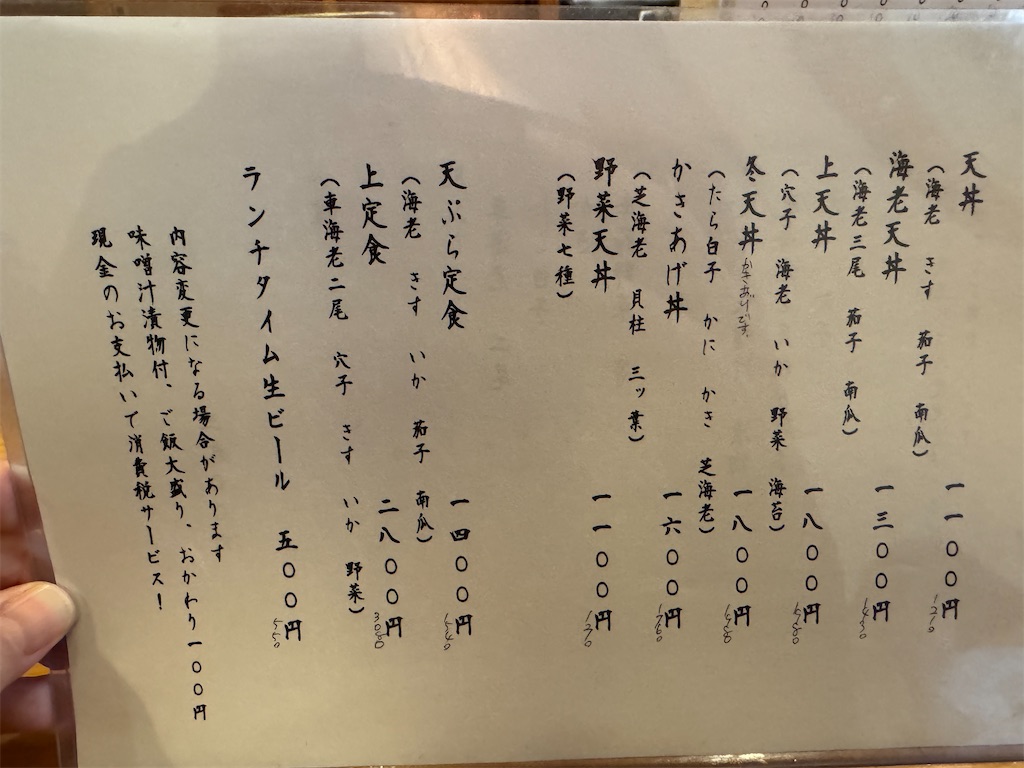 天丼 一一〇〇円 1210
(海老 きす 茄子 南瓜)
海老天丼 一三〇〇円 1430
(海老三尾 茄子 南瓜)
上天丼 一八〇〇円 1980
(穴子 海老 いか 野菜 海苔)
冬天丼 かきあげです。 一八〇〇円 1980
(たら白子 かに かき 芝海老)
かきあげ丼 一六〇〇円 1760
(芝海老 貝柱 三ッ葉)
野菜天丼 一一〇〇円 1210
(野菜七種)
天ぷら定食 一四〇〇円 1540
(海老 きす いか 茄子 南瓜)
上定食 二八〇〇円 3080
(車海老二尾 穴子 きす いか 野菜)
ランチタイム生ビール 五〇〇円 550
内容変更になる場合があります
味噌汁漬物付、ご飯大盛り、おかわり一〇〇円
現金のお支払いで消費税サービス!